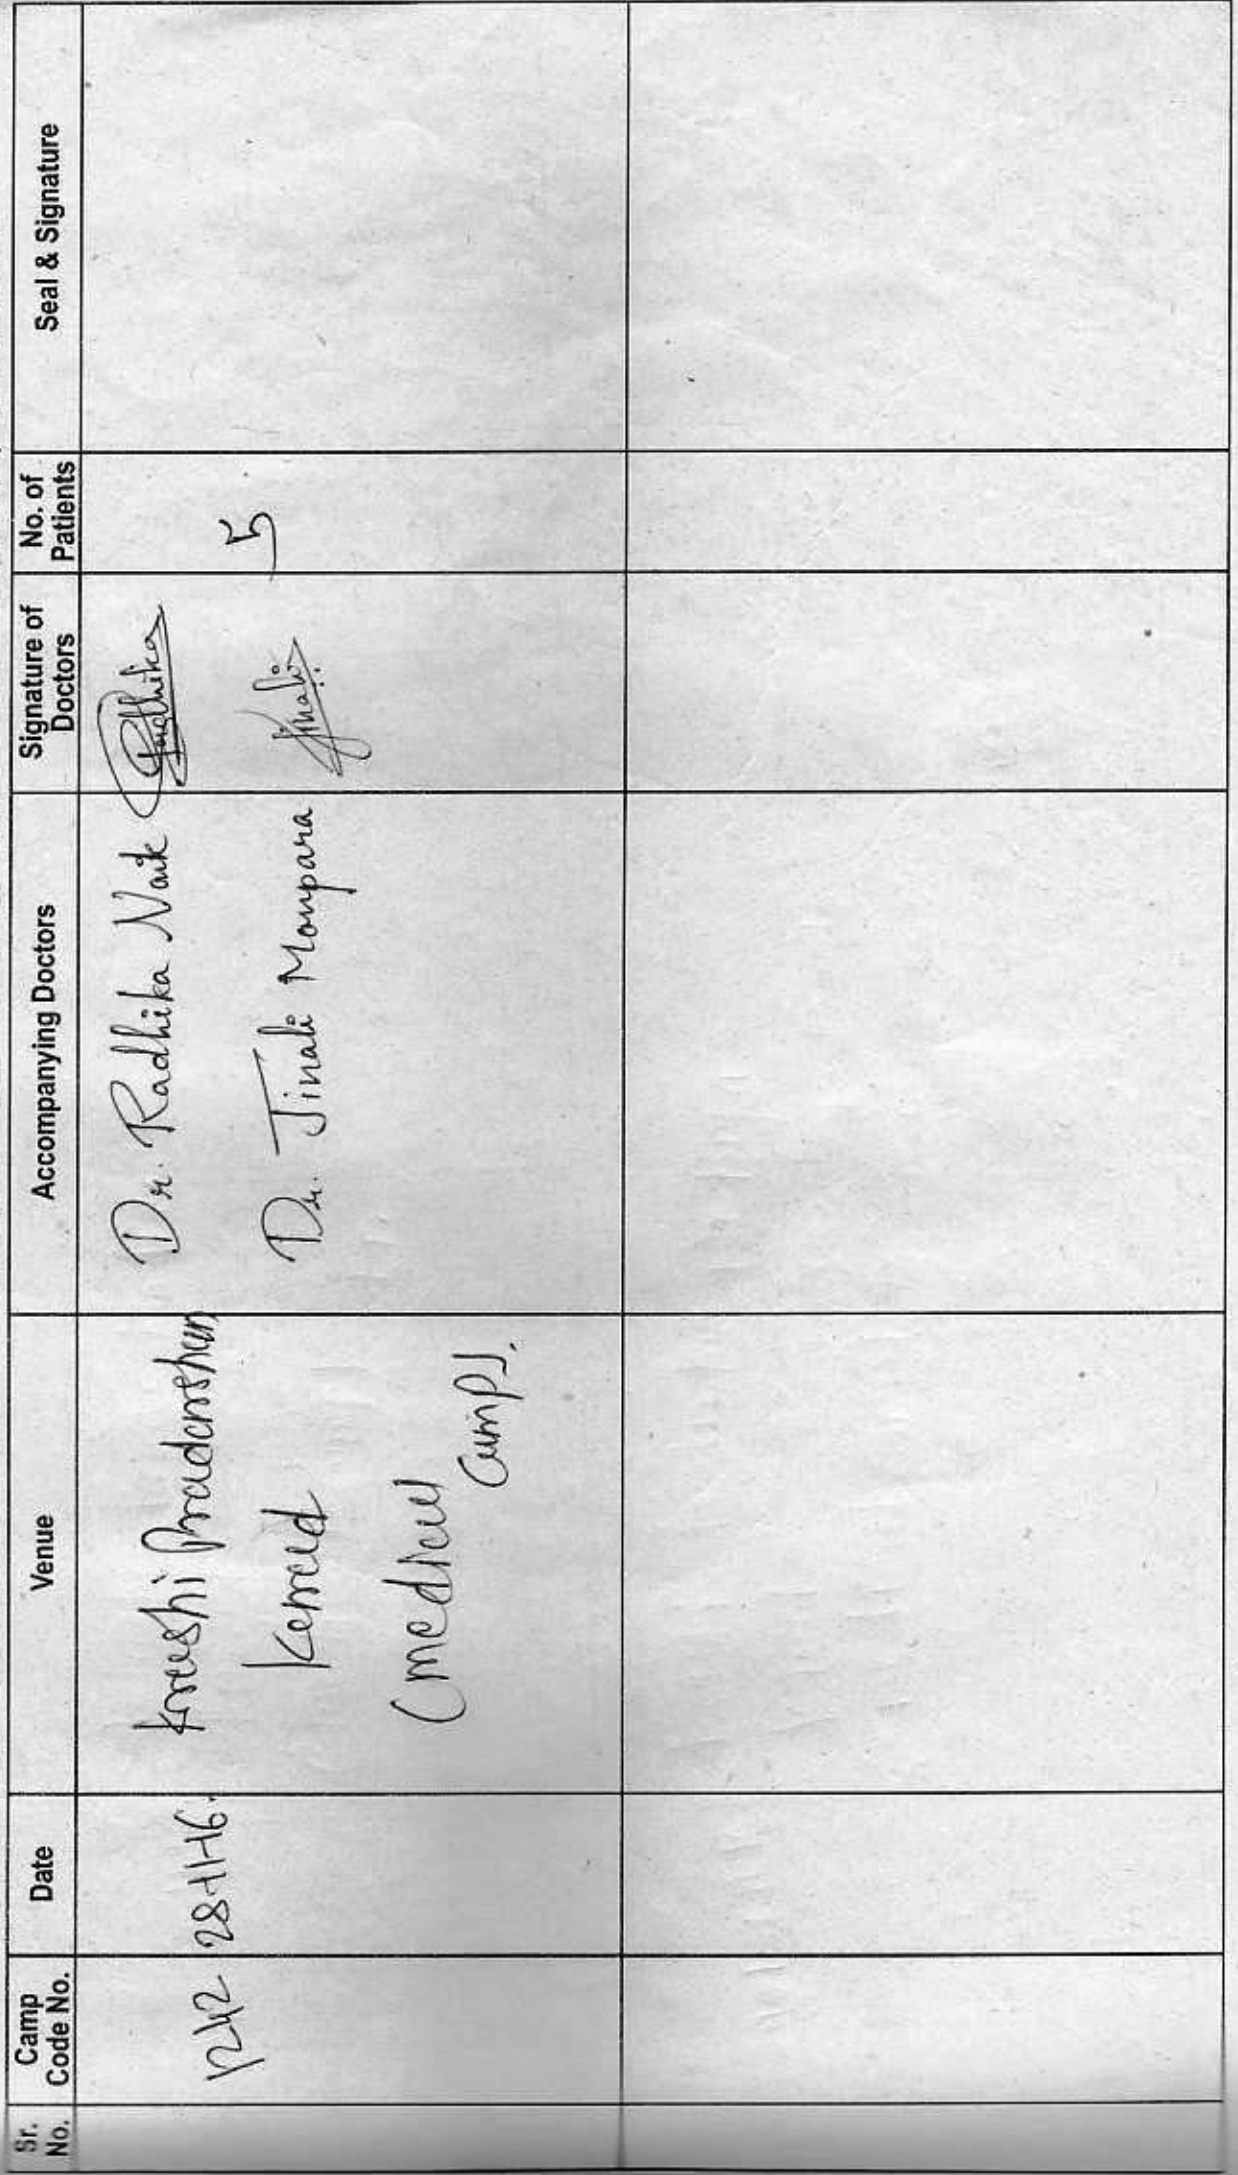 Sr. No.
Camp Code No.
Date
Venue
Accompanying Doctors
Signature of Doctors
No. of Patients
Seal & Signature
1242
28-11-16.
Krushi Pradarshan
Kerred
(medical
Camp).
Dr. Radhika Naik
Dr. Jinali Monpara
Radhika
Jinali
5